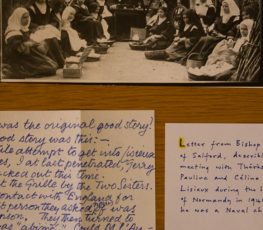 was the original good story?
ood story was this:—
ile attempt to get into Lisieux
es, I at last penetrated, Jerry
cked out this time.
at the Grille by the Two Sisters.
contact with England for
t person they asked was
pson. They then turned to
was "
Letter from Bishop
of Salford, describi
meeting with Thérès
Pauline and Céline
Lisieux during the
of Normandy in 194
he was a Naval ch